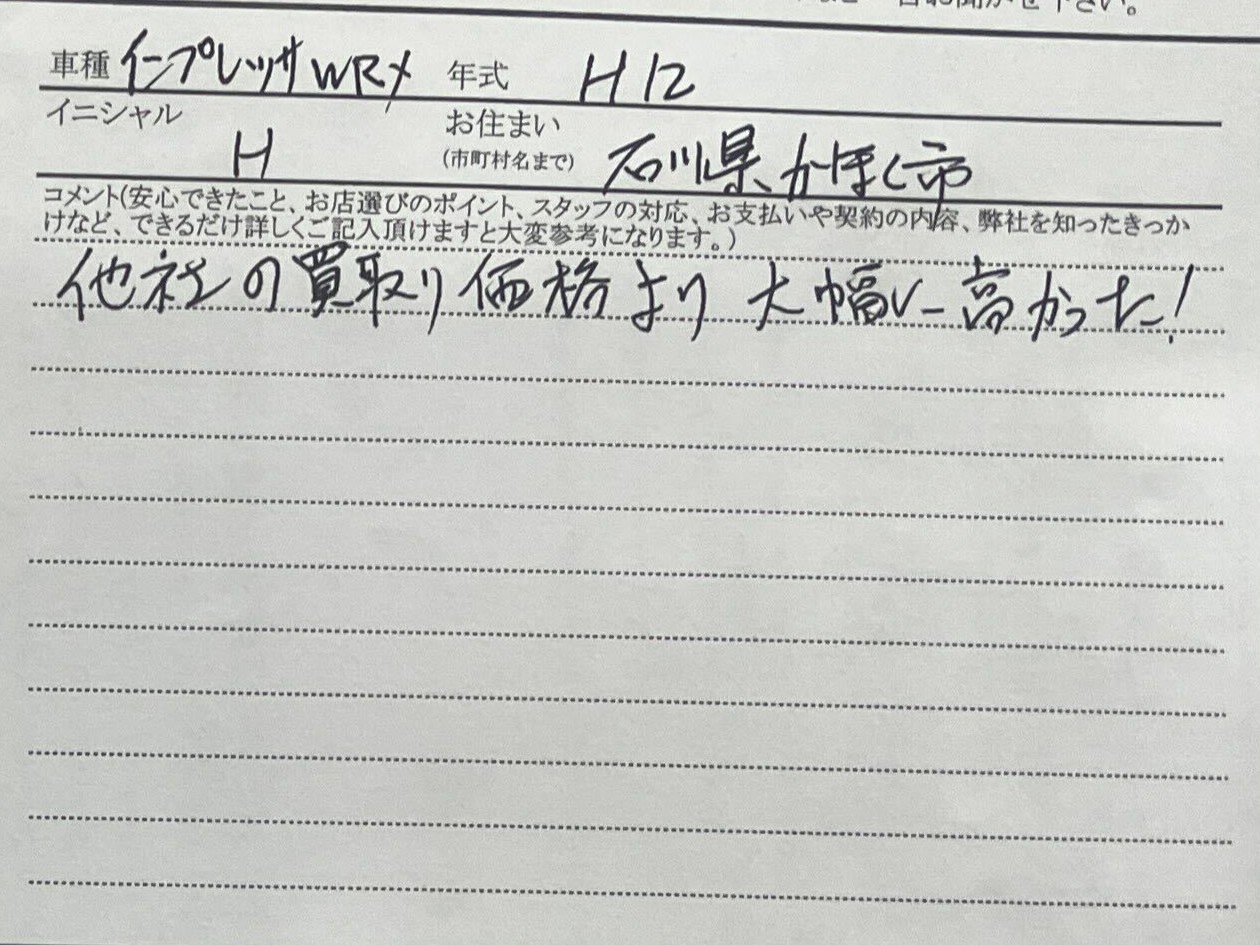 下さい。
車種 インプレッサWRX 年式 H12
イニシャル H お住まい
(市町村名まで) 石川県かほく市
コメント(安心できたこと、お店選びのポイント、スタッフの対応、お支払いや契約の内容、弊社を知ったきっか
けなど、できるだけ詳しくご記入頂けますと大変参考になります。)
他社の買取り価格より大幅に高かった!